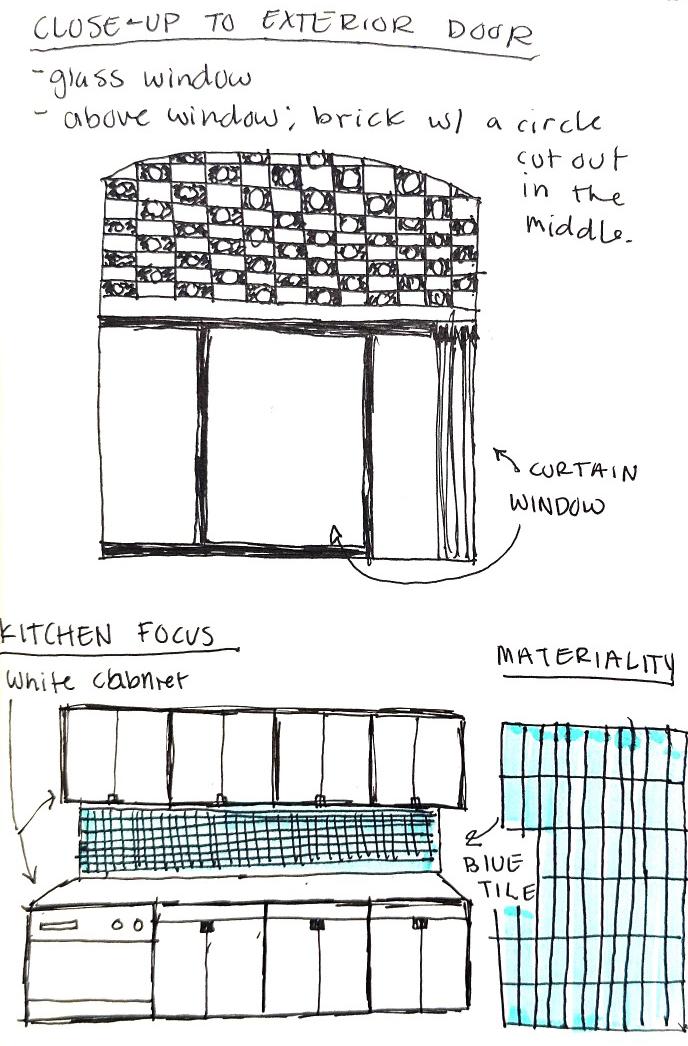 CLOSE-UP TO EXTERIOR DOOR
-glass window
- above window; brick w/ a circle
cut out
in the
middle.
CURTAIN
WINDOW
KITCHEN FOCUS
White cabnret
MATERIALITY
BLUE
TILE